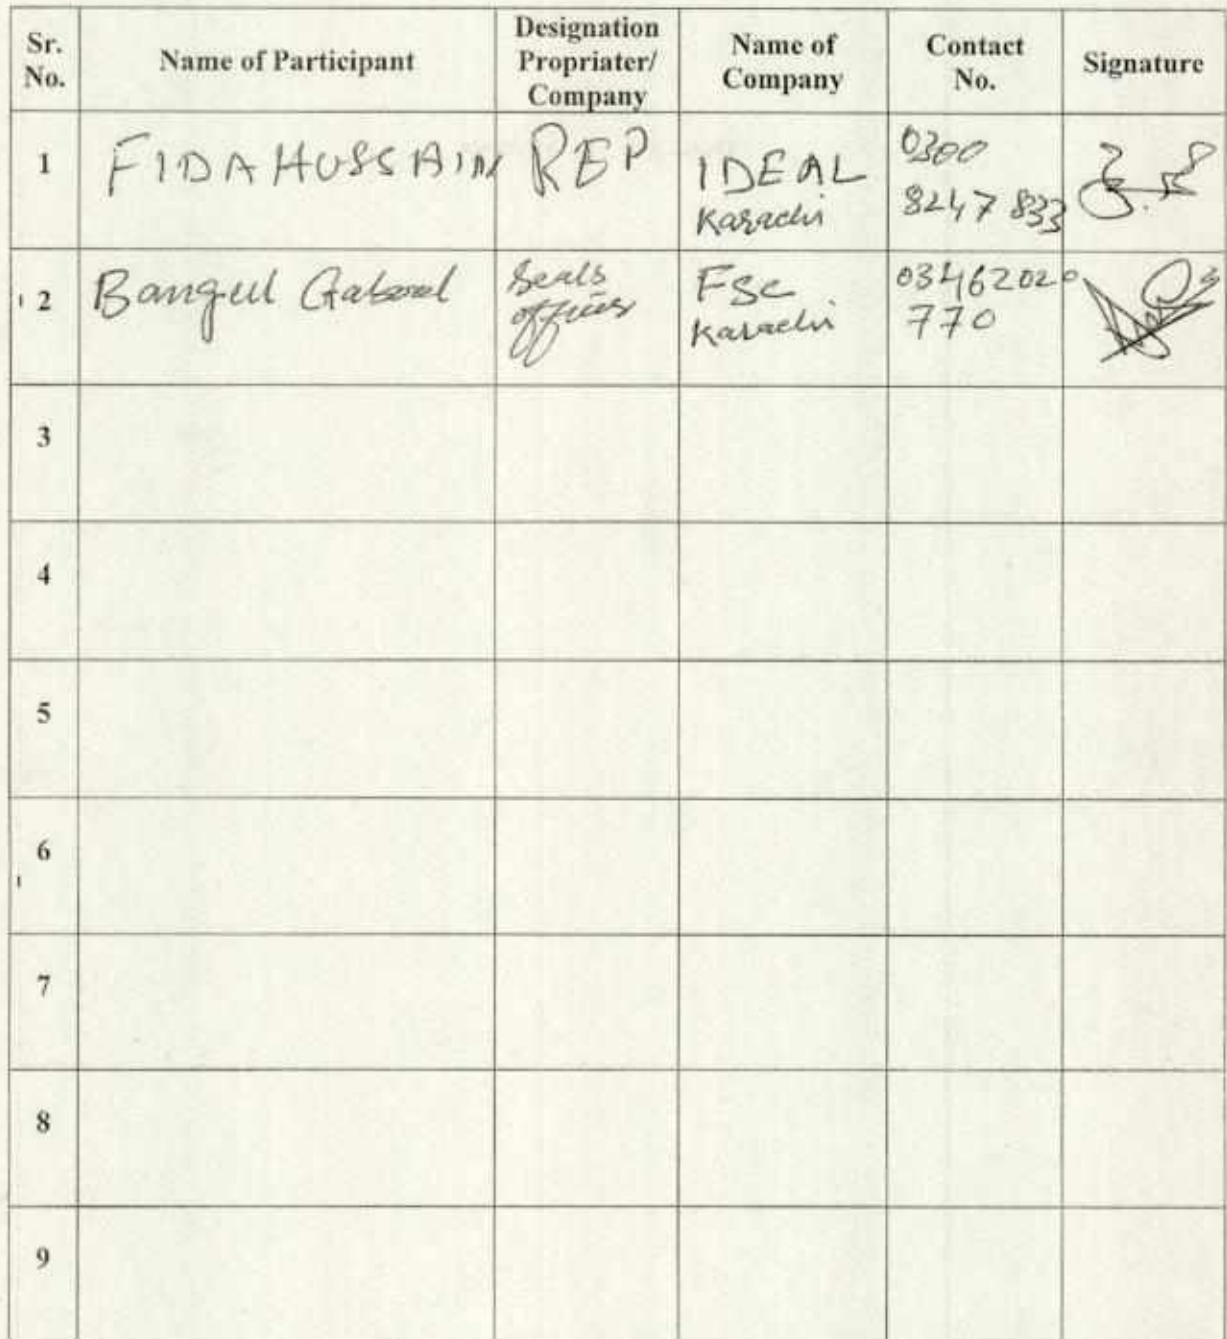 Sr. No. Name of Participant Designation Propriater/ Company Name of Company Contact No. Signature
1 FIDA HUSSAIN REP IDEAL Karachi 0300 8247833
2 Bangul Seals officer FSC Karachi 03462020 770
3
4
5
6
7
8
9